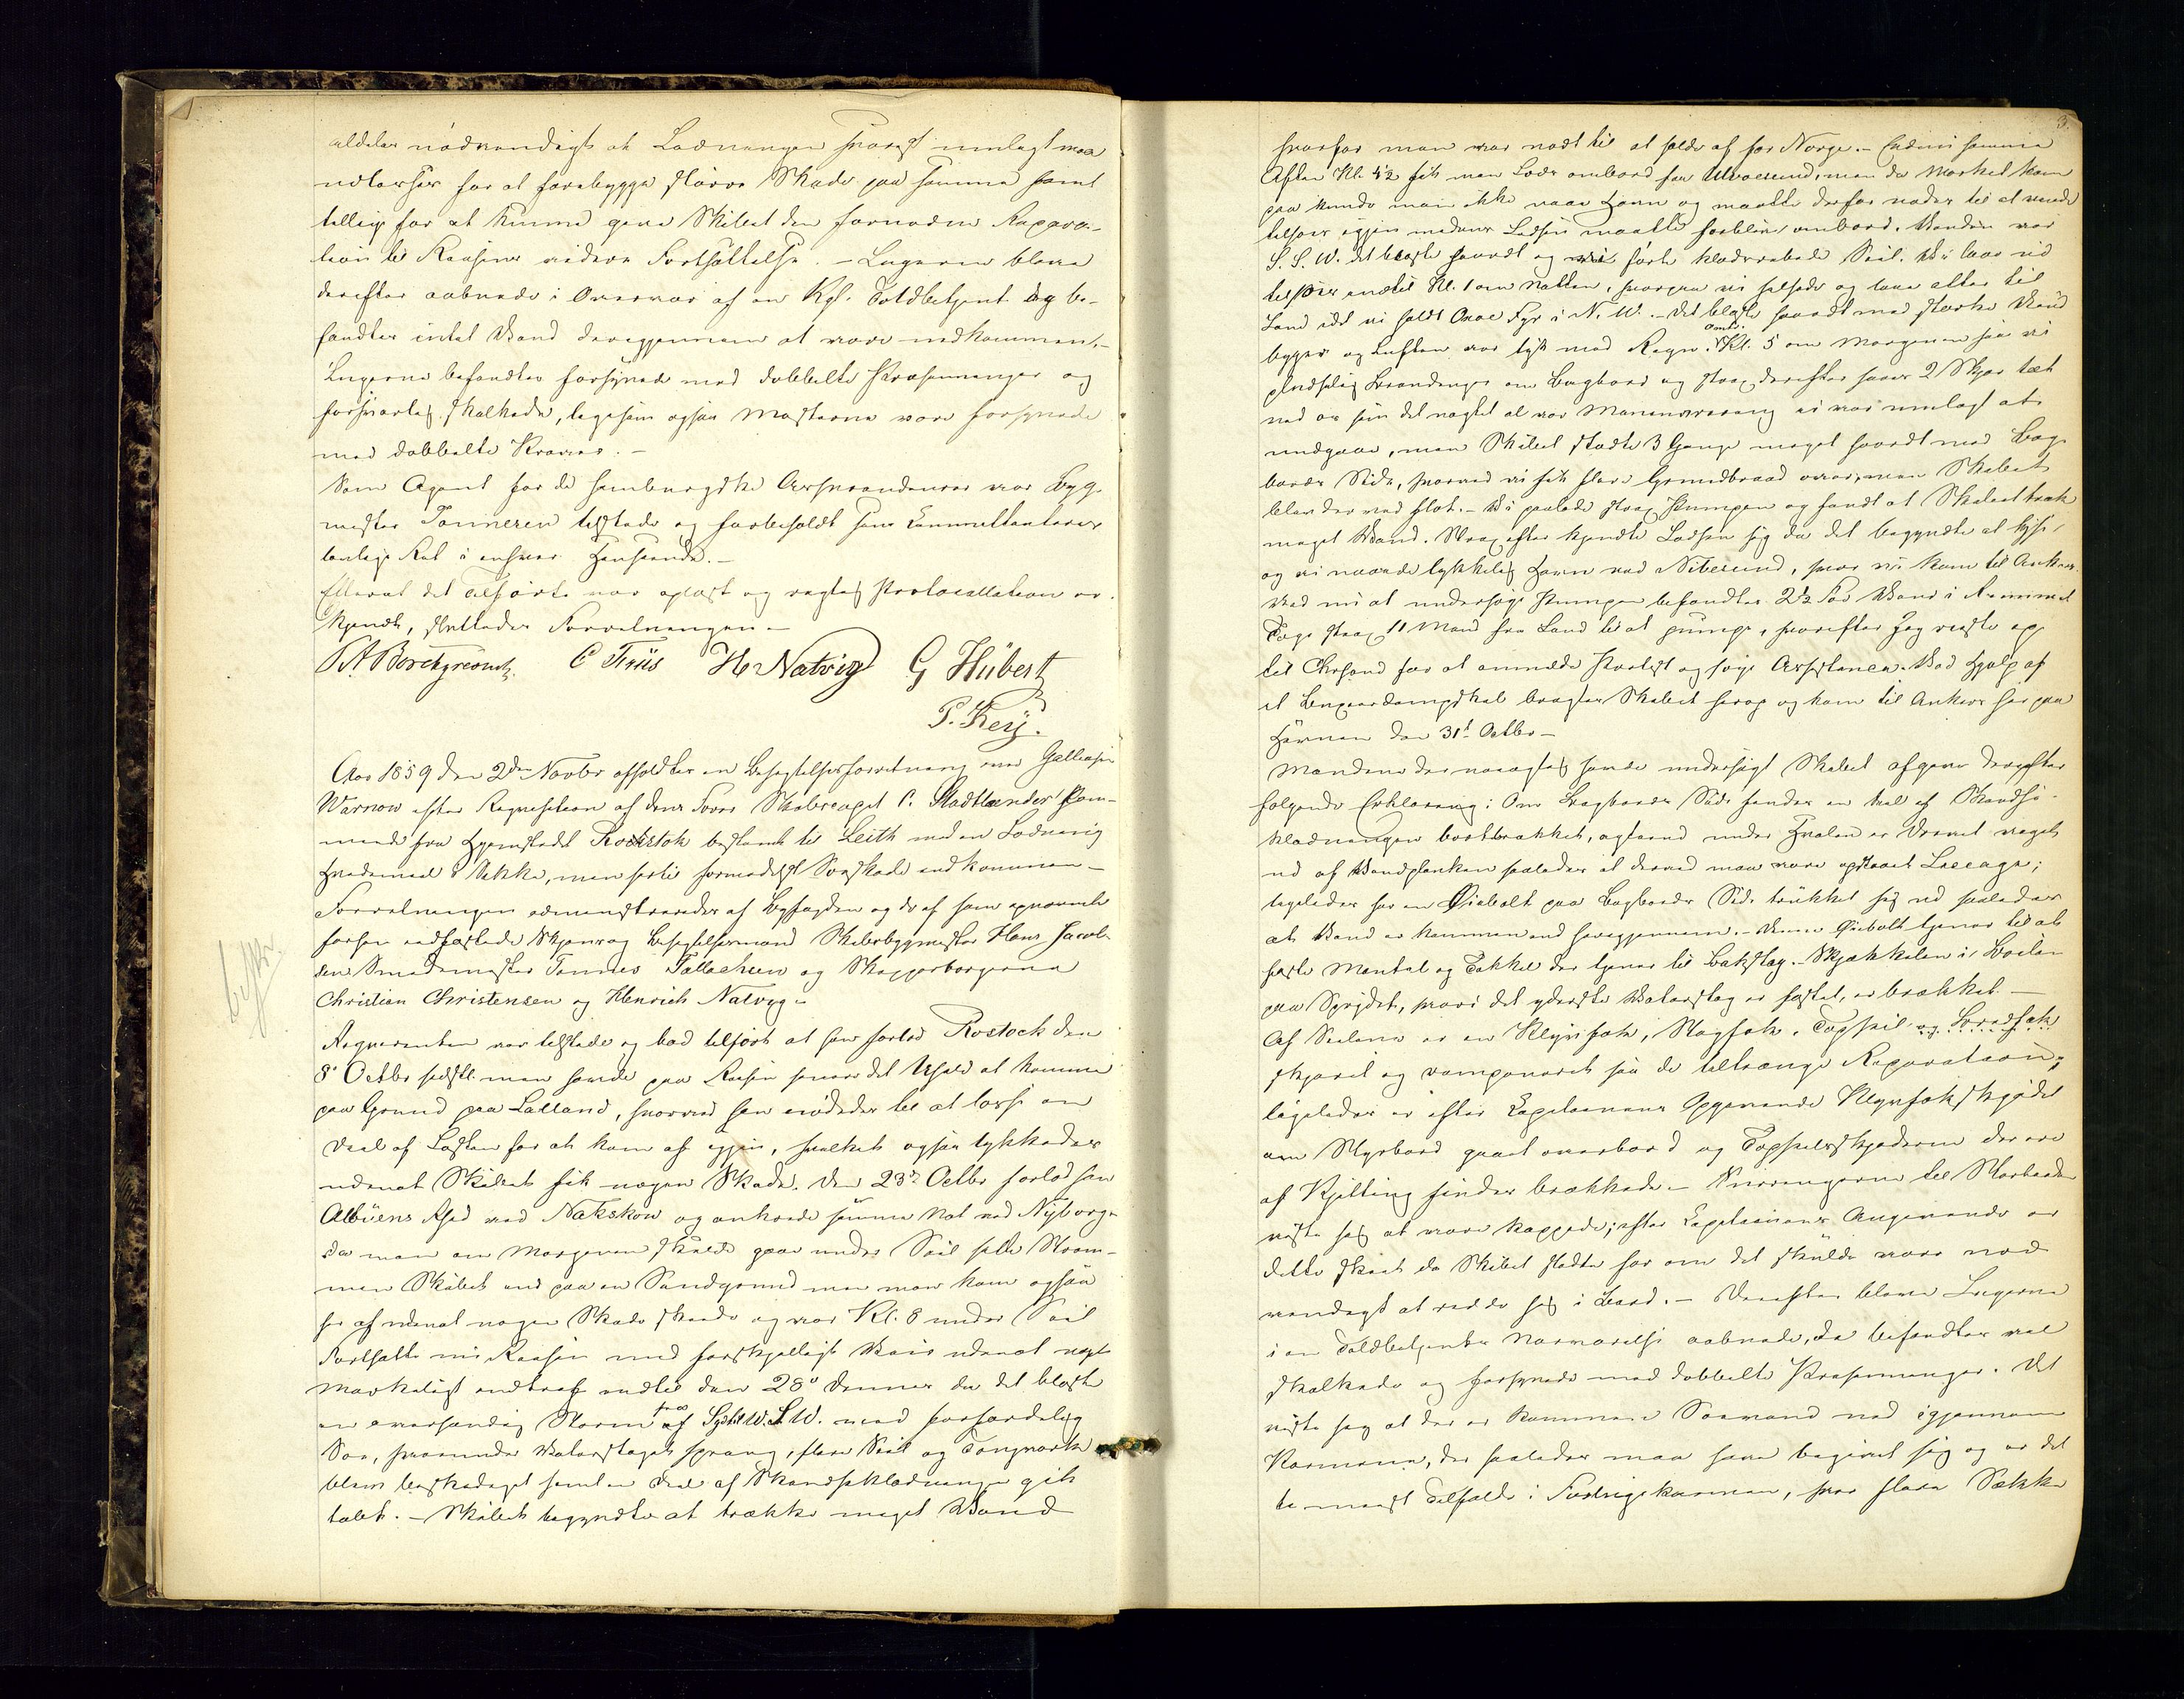 aldeles nödvendigt at Ladningen snarest muligt maa
udlosses for at forebygge större Skade paa samme samt
tillige for at kunne give Skibet den fornødne Repara-
tion til Reisens videre Fortsættelse. – Lugerne bleve
derefter aabnede i Overvær af en Kgl. Toldbetjent og be-
fandtes intet Vand derigjennem at være nedkommen. –
Lugerne befandtes forsynede med dobbelte Presenninger og
forsvarlig skalkede, ligesom ogsaa Masterne vare forsynede
med dobbelte Kraver. –
Som Agent for de hamburgske Assurandeurer var Byg-
mester tilstede og forbeholdt sine Committenter
lovlige Ret i enhver Henseende. –
Efterat det Tilførte var oplæst og rigtig Protocollation er-
kjendt, sluttedes Forretningen –
P. A. Borchgrevink. C Friis H. Natvig G Hübert
P. Keÿ.
Aar 1859 den 2den Novbr afholdtes en Besigtelsesforretning over Galleasen
Warnow efter Requisition af dens Fører Skibscapt C. Stadtlander kom-
mende fra Hjemstedet Rostok bestemt til Leith med en Ladning
Hvedemeel i Sække, men hertil formedelst Søeskade indkommen –
Forretningen administreredes af Byfogden og de af ham opnævnte
forhen edfæstede Skjøns og Besigtelsesmænd Skibsbygmester Hans Jacob-
sen Smedemester Tønnes Tallachsen og Skipperborgerne
Christian Christensen og Henrich Natvig. –
befr.
Requirenten var tilstede og bad tilført at han forlod Rostock den
8de Octbr sidstl. men havde paa Reisen havt det Uheld at komme
paa Grund paa Lalland, hvorved han nödedes til at losse en
Deel af Lasten for at kom af igjen, hvilket ogsaa lykkedes
udenat Skibet fik nogen Skade. Den 23de Octbr forlod han
Albüens Rhed ved Nakskov og ankrede samme Nat ved Nÿborg.
Da man om Morgenen skulde gaae under Seil satte Strøm-
men Skibet ind paa en Sandgrund men man kom ogsaa
her af uden at nogen Skade skeede og var Kl. 8 under Seil
Fortsatte nu Reisen med forskjelligt Veir uden at noget
mærkeligt indtraf indtil den 28de Dennes da det blæste
en overhændig Storm fra Syd til W. S W. med forfærdelig
Søe, hvorunder Vaterstaget sprang, flere Seil og Tougværk
bleve beskadiget samt en Deel af Skandseklædningen gik
tabt. – Skibet begyndte at trække meget Vand
3.
hvorfor man var nødt til at holde af for Norge. – Endnu samme
Aften Kl. 4½ fik man Lods ombord fra Ulvøesund, men da Mørket kom
paa kunde man ikke naae Havn og maatte derfor nødes til at vende
tilsøes igjen medens Lodsen maatte forblive ombord. Vinden var
S. S. W. det blæste haardt og vi førte klodsrebede Seil. Vi laae ud
tilsøes indtil Kl. 1 om Natten, hvorpaa vi halsede og laae atter til
Land idet vi holdt Oxøe Fyr i N. W. – Det blæste haardt med stærke Vand
byger og Luften var tyk med Regn. Omtr. Kl. 5 om Morgenen saae vi
pludselig Brændinger om Bagbord og strax derefter saaes 2 Skjær tæt
ved os som det negtet al vor Manøuvrering ei var muligt at
undgaae, men Skibet stødte 3 Gange meget haardt med Bag-
bords Side, hvorved vi fik flere Grundbraad over; men Skibet
blev der ved flot. – Vi peilede strax Pumpen og fandt at Skibet trak
meget Vand. Strax efter kjendte Lodsen sig da det begyndte at lyse,
og vi naaede lykkelig Havn ved Nibesund, hvor vi kom til Ankers
Ved nu at undersøge Pumpen befandtes 2½ Fod Vand i Rummet
Toge strax 11 Mand fra Land til at pumpe, hvorefter jeg reiste op
til Chrsand for at anmelde Protest og søge Assistance. Ved Hjelp af
et Bugseerdampskib bragtes Skibet herop og kom til Ankers her paa
Havnen den 31te Octbr –
Mændene der nøiagtig havde undersøgt Skibet afgave derefter
følgende Erklæring: Om Bagbords Side findes en Deel af Skandse-
klædningen bortbrækket, agterud under Hvalen er Værket veget
ud af Vandplanken saaledes at derved maa være opstaaet Leccage;
ligeledes har en Øiebolt paa Bagbords Side trukket sig ud saaledes
at Vand er kommen ind herigjennem. – Denne Øiebolt tjener til at
feste Mantel og Takkel der tjener til Bakstag. – Skjækkelen i Boilen
paa Sprydet, hvori det yderste Vaterstag er festet, er brækket. –
Af Seilene er en Klyvfok, Stagfok, Topseil og Bredfok
skjøret og ramponeret saa de tiltrænge Reparation;
ligeledes er efter Capitainens Opgivende Klyvfokskjødet
om Styrbord gaaet overbord og Topseilsskjøderne der ere
af Kjetting findes brækkede. – Surringerne til Storbaaden
viste sig at være kappede; efter Capitainens Angivende er
dette skeet da Skibet stødte for om det skulde være nød-
vendigt at redde sig i Baad. – Derefter bleve Lugerne
i en Toldbetjents Nærværelse aabnede, de befandtes vel
skalkede og forsynede med dobbelte Presenninger. Det
viste sig at der er kommen Søevand ned igjennem
Karmene, der saaledes maa have begivet sig og er det
te meest Tilfældet i Forlugekarmen, hvor flere Sække